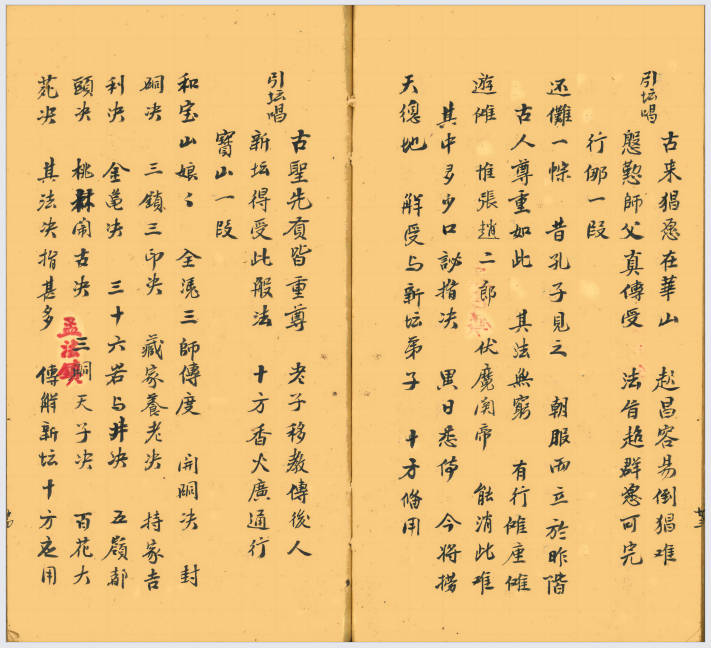 引坛唱
古来猖惡在華山 趂昌容易倒猖难
慇懃師父真傳受 法旨趋群意可完
行傩一段
还儺一悰 昔孔子見之 朝服而立於昨階
古人尊重如此 其法無窮 有行傩座傩
遊傩 惟張趙二郎 伏魔関帝 能消此难
其中多少口訣指决 異日悉俻 今将捞
天總地 觧受与新坛弟子 十方俻用
引坛唱
古聖先贡皆重尊 老子移教傳後人
新坛得受此般法 十方香火廣通行
寳山一段
和宝山娘〻 全凴三師傳度 開硐决 封
硐决 三鎖三印决 藏家養老决 持家吉
利决 金亀决 三十六岩与井决 五嶺都
頭决 桃林閙古决 三硐天子决 百花大
苑决 其法决指甚多 傳觧新坛十方应用
孟法鎮